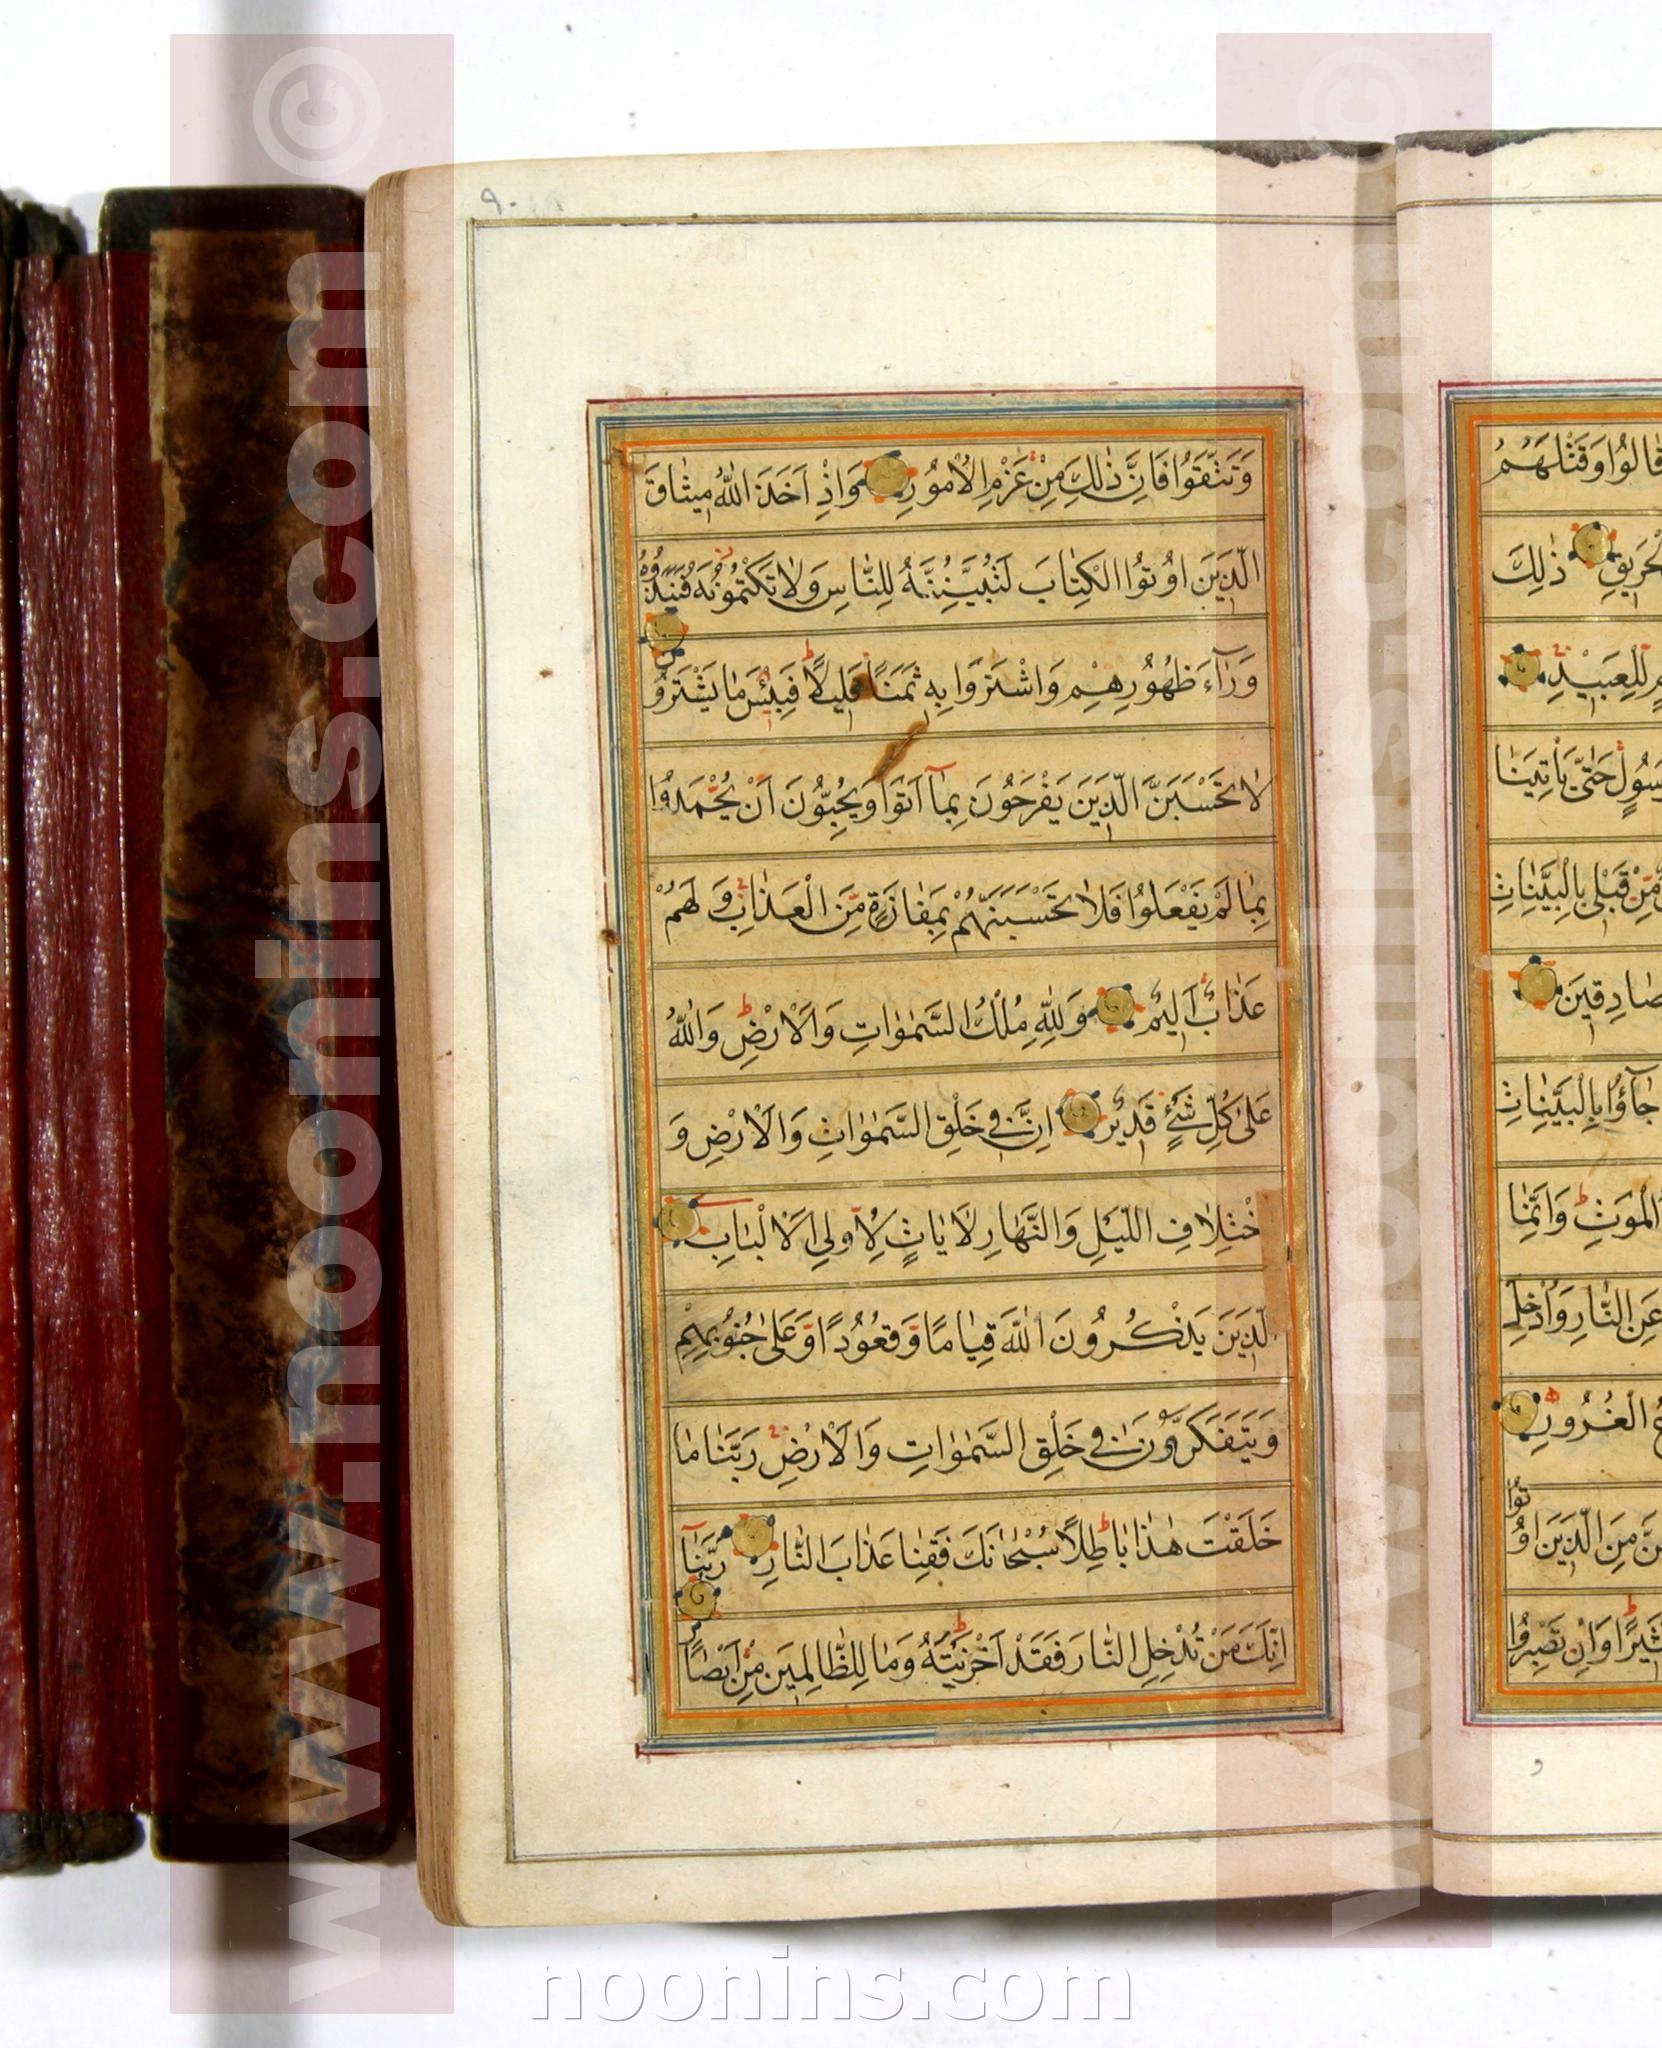 ٩٠
وَتَتَّقُوا فَاِنَّ ذٰلِكَ مِنْ عَزْمِ الْاُمُورِ وَاِذْ اَخَذَ اللّٰهُ مِيثَاقَ
الَّذِينَ اُوتُوا الْكِتَابَ لَتُبَيِّنُنَّهُ لِلنَّاسِ وَلَا تَكْتُمُونَهُ فَنَبَذُوهُ
وَرَآءَ ظُهُورِهِمْ وَاشْتَرَوْا بِهِ ثَمَنًا قَلِيلًا فَبِئْسَ مَا يَشْتَرُونَ
لَا تَحْسَبَنَّ الَّذِينَ يَفْرَحُونَ بِمَآ اَتَوْا وَيُحِبُّونَ اَنْ يُحْمَدُوا
بِمَا لَمْ يَفْعَلُوا فَلَا تَحْسَبَنَّهُمْ بِمَفَازَةٍ مِنَ الْعَذَابِ وَلَهُمْ
عَذَابٌ اَلِيمٌ وَلِلّٰهِ مُلْكُ السَّمٰوَاتِ وَالْاَرْضِ وَاللّٰهُ
عَلٰى كُلِّ شَيْءٍ قَدِيرٌ اِنَّ فِي خَلْقِ السَّمٰوَاتِ وَالْاَرْضِ وَ
خْتِلَافِ اللَّيْلِ وَالنَّهَارِ لَاٰيَاتٍ لِاُولِي الْاَلْبَابِ
لَّذِينَ يَذْكُرُونَ اللّٰهَ قِيَامًا وَقُعُودًا وَعَلٰى جُنُوبِهِمْ
وَيَتَفَكَّرُونَ فِي خَلْقِ السَّمٰوَاتِ وَالْاَرْضِ رَبَّنَا مَا
خَلَقْتَ هٰذَا بَاطِلًا سُبْحَانَكَ فَقِنَا عَذَابَ النَّارِ رَبَّنَا
اِنَّكَ مَنْ تُدْخِلِ النَّارَ فَقَدْ اَخْزَيْتَهُ وَمَا لِلظَّالِمِينَ مِنْ اَنْصَارٍ
قَالُوا وَقَتْلَهُمُ
الْحَرِيقِ ذٰلِكَ
لِلْعَبِيدِ
حَتّٰى يَاْتِيَنَا
مِنْ قَبْلِي بِالْبَيِّنَاتِ
صَادِقِينَ
جَآؤُا بِالْبَيِّنَاتِ
الْمَوْتِ وَاِنَّمَا
عَنِ النَّارِ وَاُدْخِلَ
الْغُرُورِ
مِنَ الَّذِينَ اُوتُوا
وَاِنْ تَصْبِرُوا
و
www.noonins.com ©
www.noonins.com ©
noonins.com